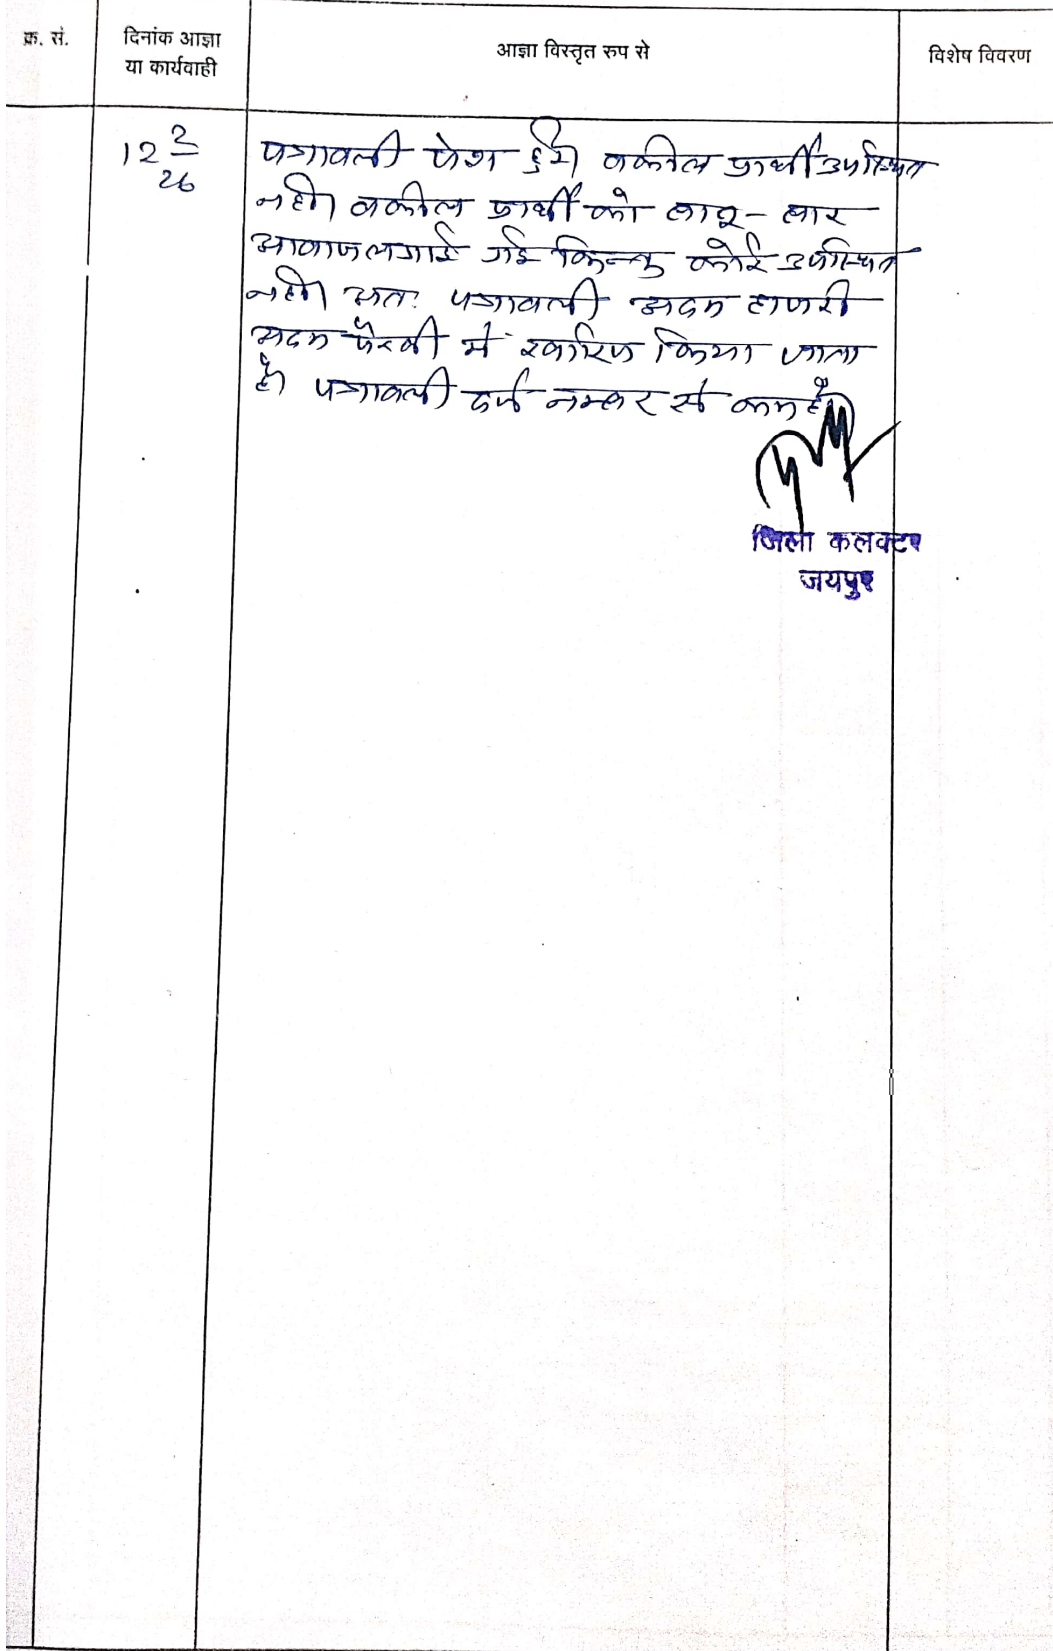 क्र. सं.
दिनांक आज्ञा
या कार्यवाही
आज्ञा विस्तृत रुप से
विशेष विवरण
12 2/26
पत्रावली पेश हुई। वकील प्रार्थी उपस्थित
नही। वकील प्रार्थी को बार-बार
आवाज लगाई गई किन्तु कोई उपस्थित
नही। अतः पत्रावली अदम हाजरी
अदम पैरवी में खारिज किया जाता
है। पत्रावली दर्ज नम्बर से कम हो।
जिला कलक्टर
जयपुर